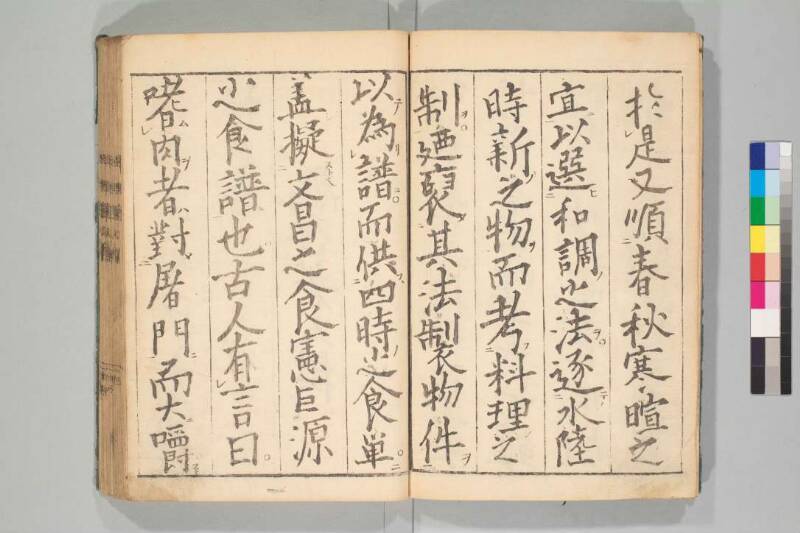 於是又順春秋寒暄之
宜以選和調之法逐水陸
時新之物而考料理之
制廼裒其法製物件
以為譜而供四時之食単
蓋擬文昌之食憲巨源
之食譜也古人有言曰
嗜肉者對屠門而大嚼